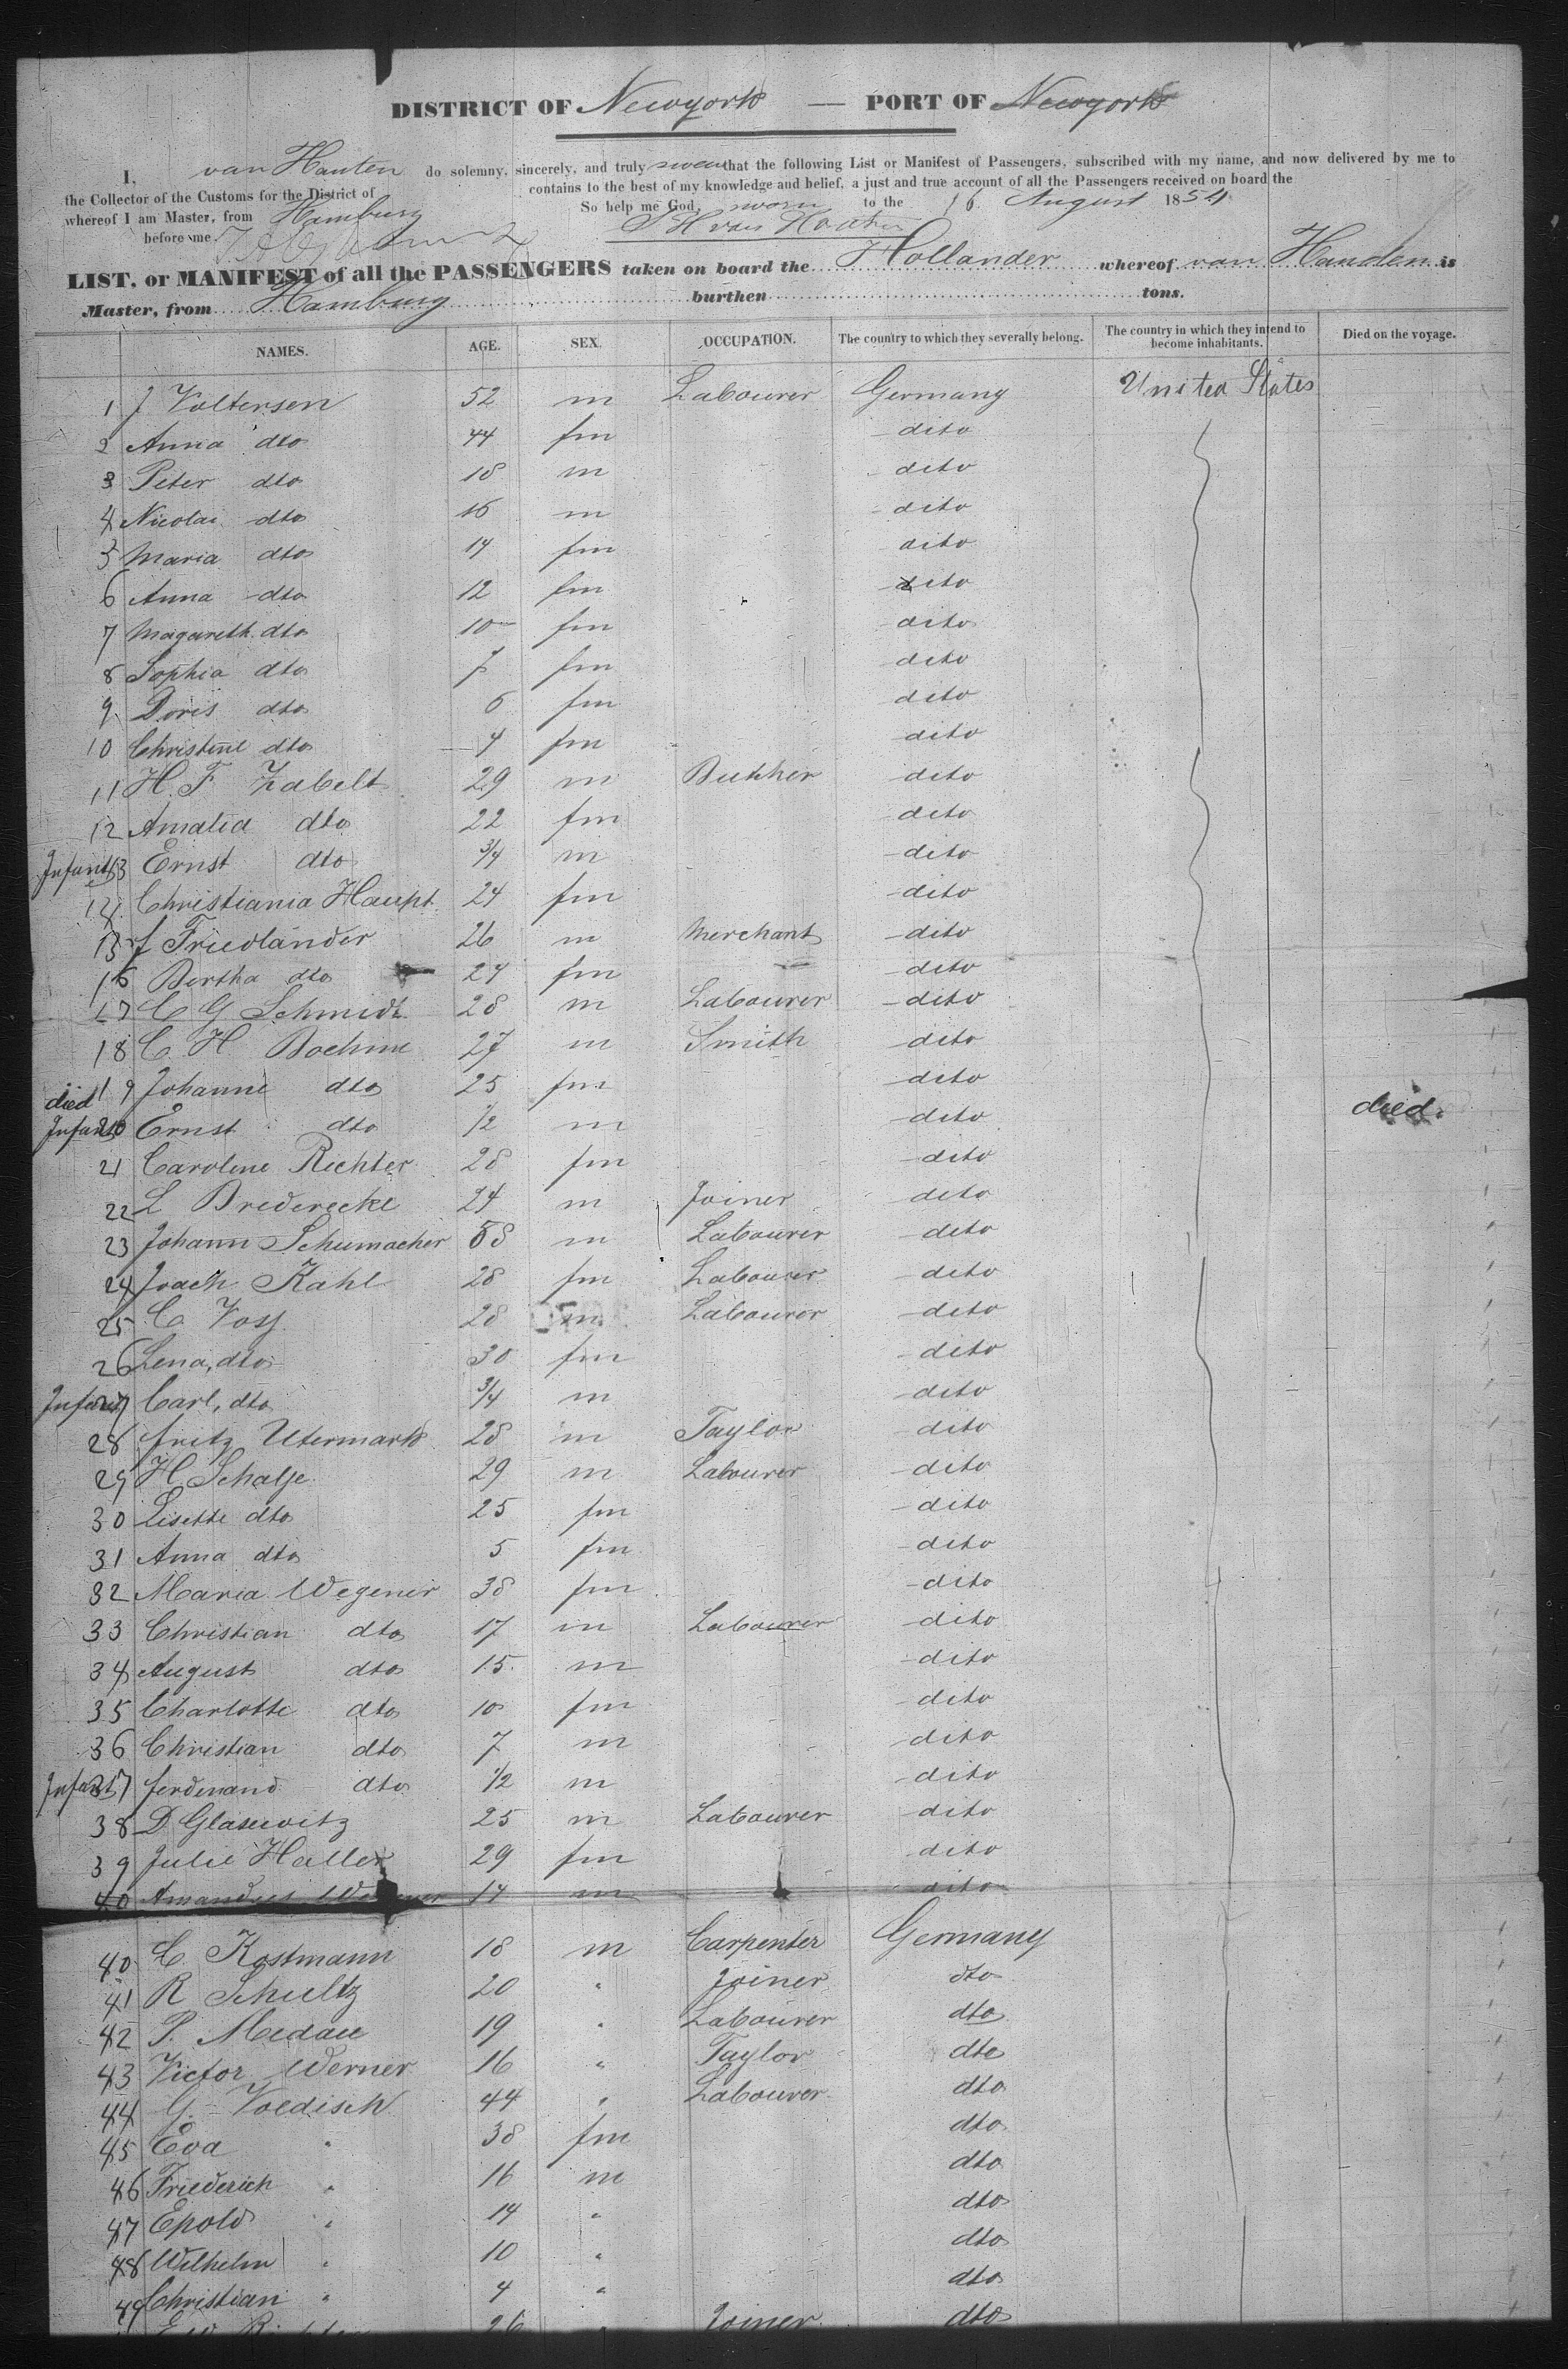 DISTRICT OF Newyork — PORT OF Newyork
I, van Hauten do solemny, sincerely, and truly swear that the following List or Manifest of Passengers, subscribed with my name, and now delivered by me to
the Collector of the Customs for the District of contains to the best of my knowledge and belief, a just and true account of all the Passengers received on board the
whereof I am Master, from Hamburg So help me God, sworn to the 16 August 1854
before me
LIST, or MANIFEST of all the PASSENGERS taken on board the Hollander whereof van Hauden is
Master, from Hamburg burthen tons.
NAMES. AGE. SEX. OCCUPATION. The country to which they severally belong. The country in which they intend to become inhabitants. Died on the voyage.
1 J Voltersen 52 m Labourer Germany United States
2 Anna dto 44 fm dito
3 Peter dto 18 m dito
4 Nicolai dto 16 m dito
5 Maria dto 14 fm dito
6 Anna dto 12 fm dito
7 Magareth dto 10 fm dito
8 Sophia dto 7 fm dito
9 Doris dto 6 fm dito
10 Christine dto 4 fm dito
11 H. F Zabelt 29 m Butcher dito
12 Amalia dto 22 fm dito
Infant 13 Ernst dto 3/4 m dito
14 Christiania Haupt 24 fm dito
15 J Friedländer 26 m Merchant dito
16 Bertha dto 24 fm dito
17 C G Schmidt 28 m Labourer dito
18 C. H. Boehme 27 m Smith dito
19 Johanne dto 25 fm dito
died Infant 20 Ernst dto 1/2 m dito died.
21 Caroline Richter 28 fm dito
22 L Brederecke 24 m Joiner dito
23 Johann Schumacher 58 m Labourer dito
24 Joach Kahl 28 fm Labourer dito
25 C Voss 28 m Labourer dito
26 Lena, dto 30 fm dito
Infant 27 Carl, dto 3/4 m dito
28 fritz Utermark 28 m Taylor dito
29 H Schalje 29 m Labourer dito
30 Lisette dto 25 fm dito
31 Anna dto 5 fm dito
32 Maria Wegener 38 fm dito
33 Christian dto 17 m Labourer dito
34 August dto 15 m dito
35 Charlotte dto 10 fm dito
36 Christian dto 7 m dito
Infant 37 ferdinand dto 1/2 m dito
38 D Glasewitz 25 m Labourer dito
39 Julie Haller 29 fm dito
40 Amandus 14 m dito
40 C. Kostmann 18 m Carpenter Germany
41 R Schultz 20 " Joiner dto
42 P. Medau 19 " Labourer dto
43 Victor Werner 16 " Taylor dto
44 G. Voedisch 44 " Labourer dto
45 Eva " 38 fm dto
46 Friederich " 16 m dto
47 Epold " 14 " dto
48 Wilhelm " 10 " dto
49 Christian " 4 " dto
26 " Joiner dto